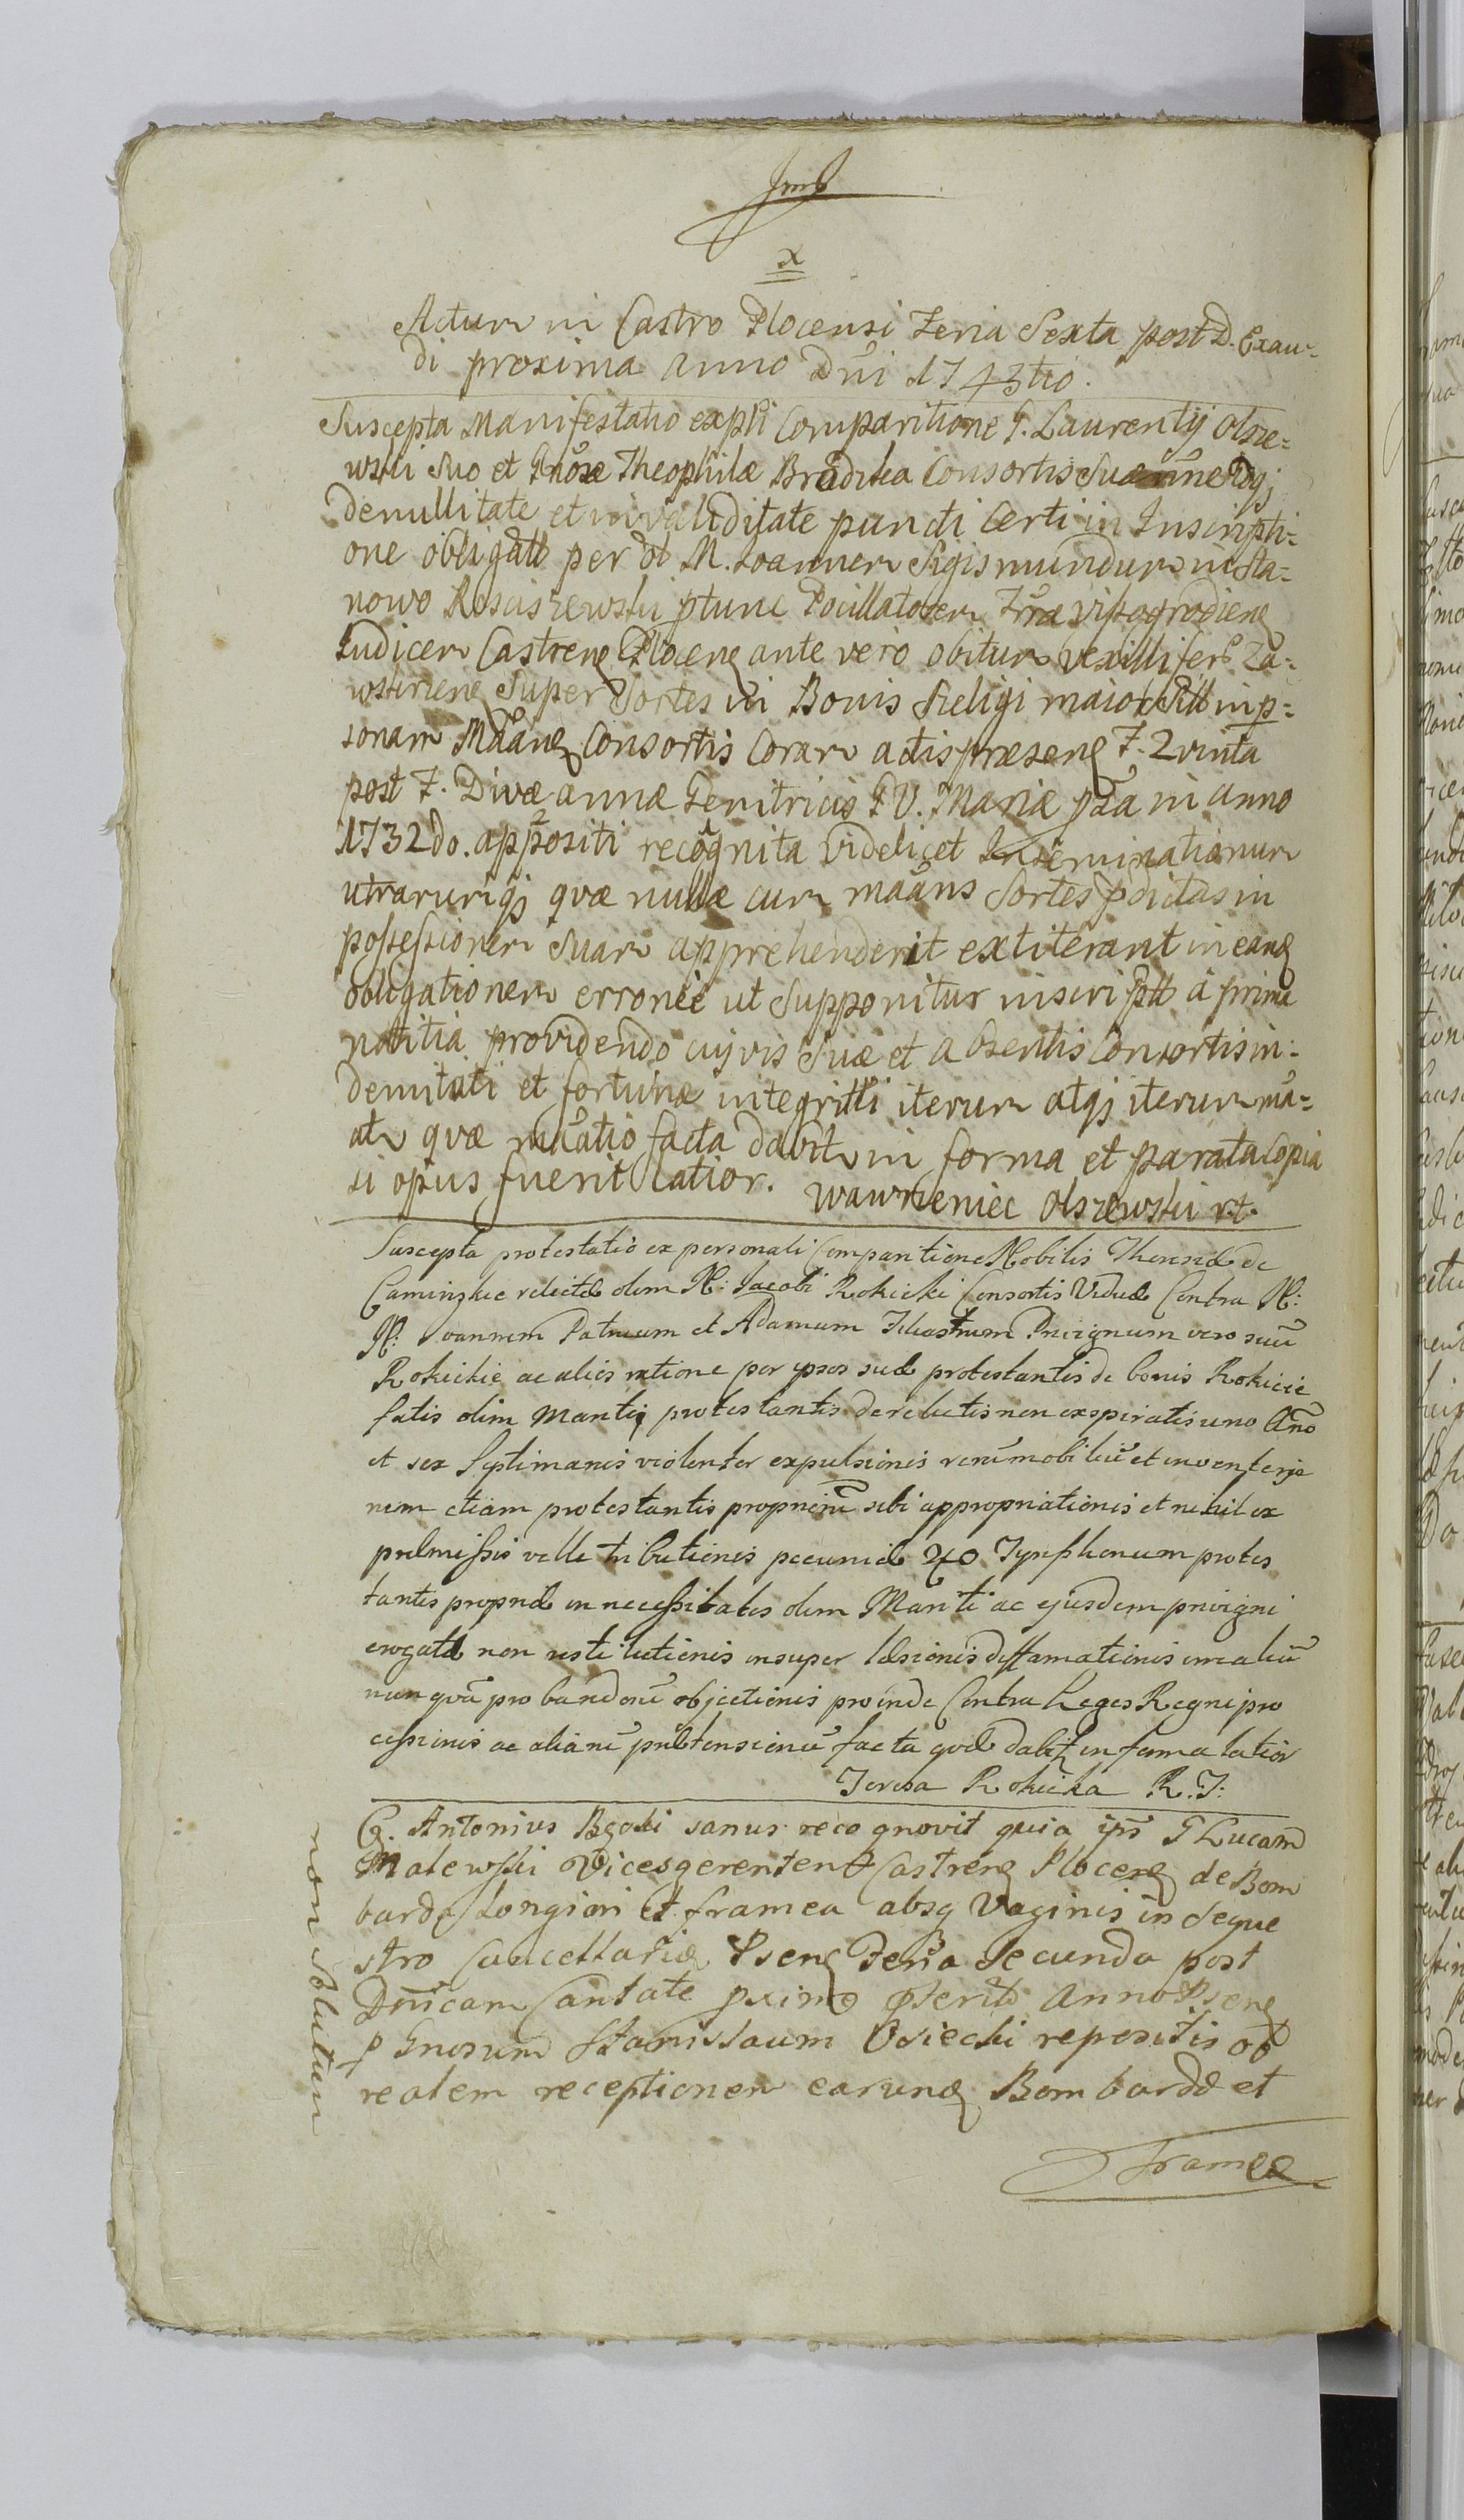 x
Actum in Castro Plocensi Feria Sexta post D. Exau-
di proxima Anno Dni 1743tio.
Suscepta Manifestatio expli Comparitione G. Laurentij Olsze=
wski suo et Gnosæ Theophilæ Consortis Suæ
de nullitate et invaliditate puncti Certi in Inscripti=
one obligatt per ol M. Joannem Sigismundum in Sta=
nowo Rosciszewski ptunc Pocillatorem Trræ visogrodiens
Judicem Castrens Plocens ante vero obitum vexilliferu Za=
wskriens super Sortes in Bonis Sieligi maior in p=
sonam Maans Consortis Coram actis præsens F. Quinta
post F. Divæ Annæ Genitricis B V. Mariæ pxa in Anno
1732do. appositi recognita videlicet Inseminationum
utrarumqs quæ nullæ cum maans Sortes pdictas in
possessionem suam apprehenderit extiterant in eand
obligationem erronie ut Supponitur inscriptt a prima
notitia providendo cujvis suæ et absentis Consortis in=
demitati et fortunæ integritti iterum atqs iterum ma=
atr quæ maatio facta dabitr in forma et parata Copia
si opus fuerit latior. Wawrzeniec Olszewski rt.
Suscepta protestatio ex personali Comparitione Nobilis Theresiæ de
Caminskie relictæ olim N: Jacobi Rokicki Consortis Viduæ Contra N:
N: Joannem Patruum et Adamum Filiastrum Privignum vero suu
Rokickie ac alios ratione per ipsos suæ protestantis de bonis Rokicie
fatis olim Mariti protestantis derelictis non exspiratis uno Ano
et sex Septimanis violenter expulsionis reru mobiliu et inventerja
nem etiam protestantis propriaru sibi appropriationis et nihil ex
præmissis velle tributionis pecuniæ 240 Tynfhonum protes
tantis propriæ in necessitates olim Mariti ac ejusdem privigni
erogatæ non restitutionis insuper læsionis diffamationis
nunqva probandoru objectionis proinde Contra Leges Regni pro
cessionis ac aliaru prætensionu facta qvæ dabitr in forma latior
Teresa Rokicka R.T:
G. Antonius Bgoski sanus recognovit quia ips G Lucam
Malewski Vicesgerentem Castrens Plocens de Bom
barda Longiori et framea absq Vaginis in Seque
stro Cancellariæ Psens Feria Secunda post
Dnicam Cantate pxime pterito Anno Psens
p Gnosum Stanislaum Osiecki repositis ob
realem receptionem earund Bombardæ et
Frameæ
non solutum